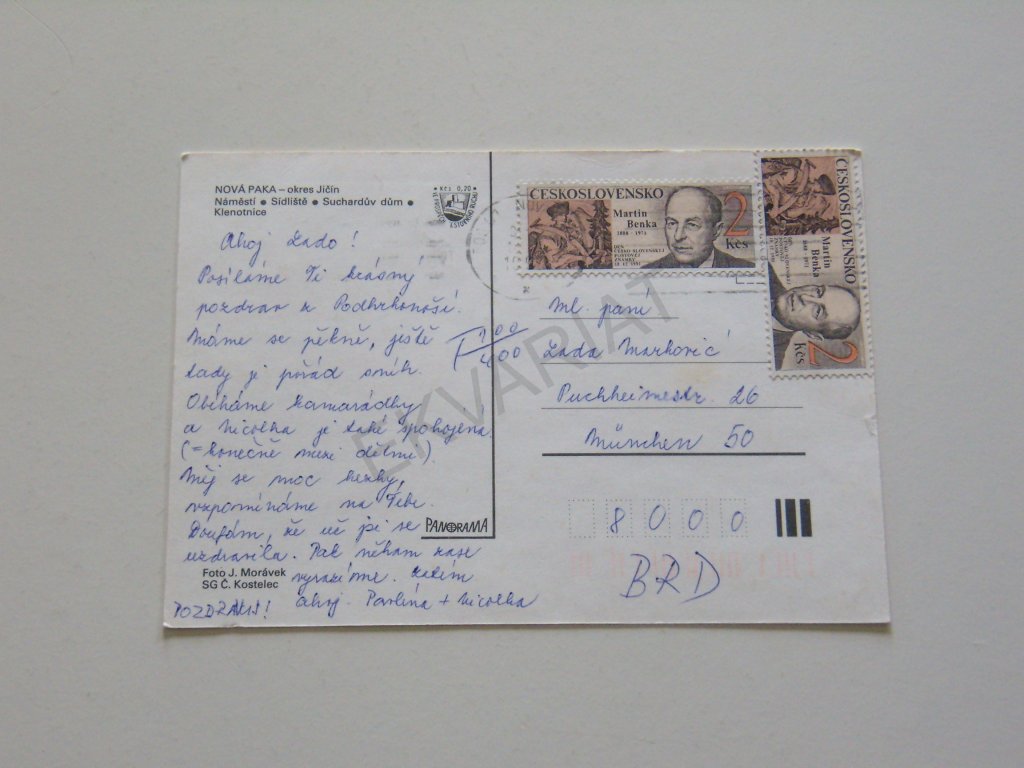 NOVÁ PAKA – okres Jičín
Náměstí ● Sídliště ● Suchardův dům ●
Klenotnice
Kčs 0,20
Ahoj Lado!
Posíláme Ti krásný
pozdrav z Podkrkonoší.
Máme se pěkně, ještě
tady je pořád sníh.
Obíháme kamarádky
a Nicolka je také spokojená
(=konečně mezi dětmi).
Měj se moc hezky,
vzpomínáme na Tebe.
Doufám, že už jsi se
uzdravila. Pak někam zase
vyrazíme. Zatím
ahoj. Pavlína + Nicolka
POZDRAVUJ!
Foto J. Morávek
SG Č. Kostelec
PANORAMA
ČESKOSLOVENSKO
Martin
Benka
1888 - 1971
DEN
ČESKO-SLOVENSKEJ
POŠTOVEJ
ZNÁMKY
18.12.1991
2
Kčs
ČESKOSLOVENSKO
Martin
Benka
1888 - 1971
2
Kčs
T 100/400
Ml. paní
Lada Marković
Puchheimerstr. 26
München 50
8000
BRD
EKVARIAT